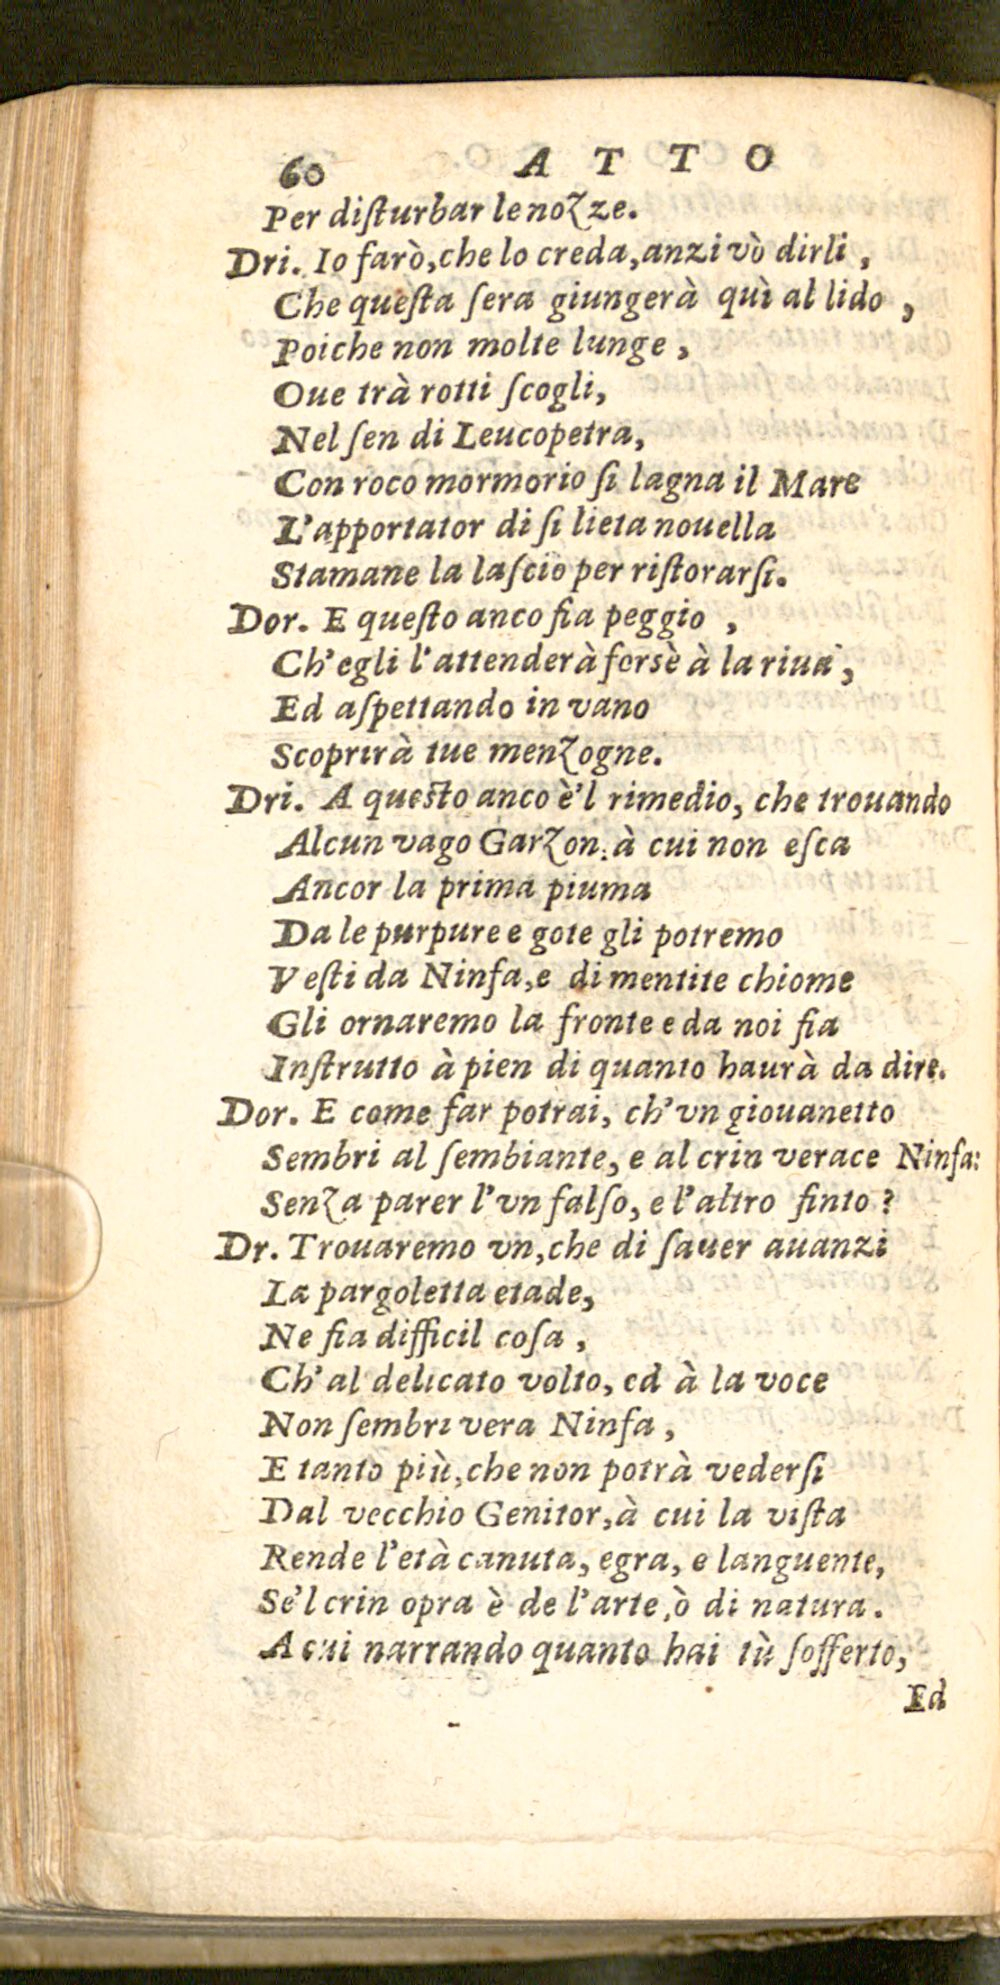 60 ATTO
Per diſturbar le nozze.
Dri. Io farò, che lo creda, anzi vò dirli,
Che queſta ſera giungerà quì al lido,
Poiche non molte lunge,
Oue trà rotti ſcogli,
Nel ſen di Leucopetra,
Con roco mormorio ſi lagna il Mare
L'apportator di ſi lieta nouella
Stamane la laſciò per riſtorarſi.
Dor. E queſto anco fia peggio,
Ch'egli l'attenderà forsè à la riua,
Ed aſpettando in vano
Scoprirà tue menzogne.
Dri. A queſto anco è'l rimedio, che trouando
Alcun vago Garzon, à cui non eſca
Ancor la prima piuma
Da le purpure e gote gli potremo
Veſti da Ninfa, e di mentite chiome
Gli ornaremo la fronte e da noi fia
Inſtrutto à pien di quanto haurà da dire.
Dor. E come far potrai, ch'vn giouanetto
Sembri al ſembiante, e al crin verace Ninfa:
Senza parer l'vn falſo, e l'altro finto?
Dr. Trouaremo vn, che di ſauer auanzi
La pargoletta etade,
Ne fia difficil coſa,
Ch'al delicato volto, ed à la voce
Non ſembri vera Ninfa,
E tanto più, che non potrà vederſi
Dal vecchio Genitor, à cui la viſta
Rende l'età canuta, egra, e languente,
Se'l crin opra è de l'arte, ò di natura.
A cui narrando quanto hai tù ſofferto,
Ed